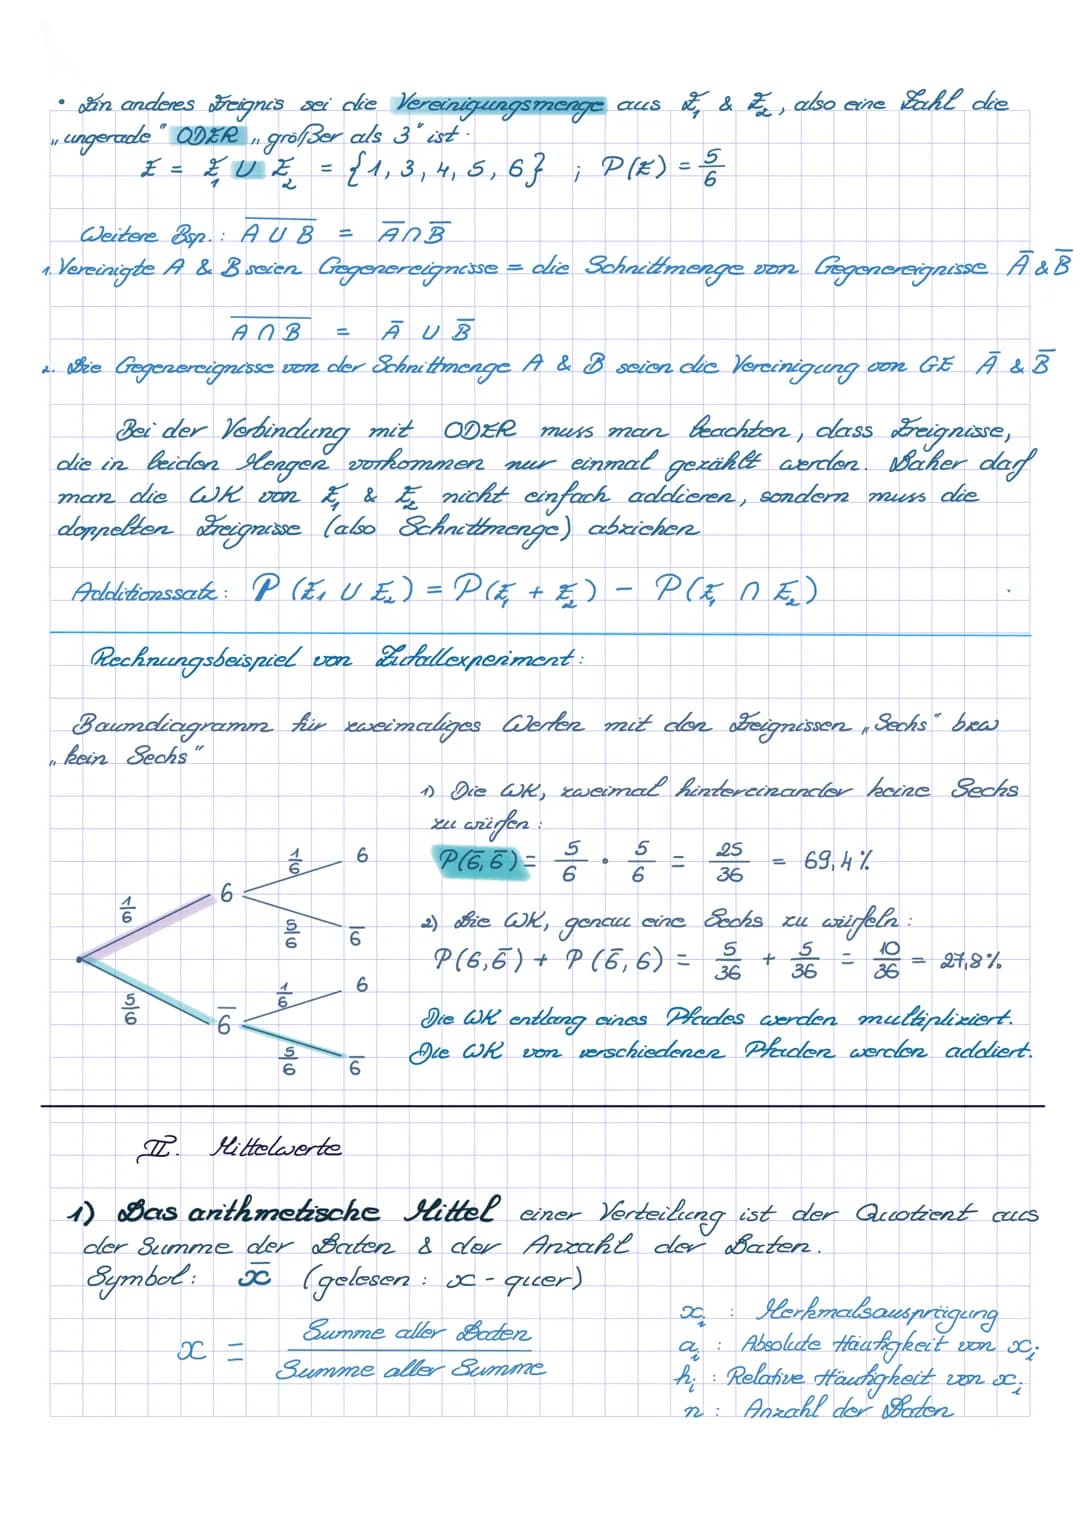 • Ein anderes Ereignis sei die Vereinigungsmenge aus E₁ & E₂, also eine Zahl die
„ungerade" ODER „größer als 3" ist.
E = E₁ ∪ E₂ = {1, 3, 4, 5, 6} ; P(E) = 5/6
Weitere Bsp.: \overline{A ∪ B} = \overline{A} ∩ \overline{B}
1. Vereinigte A & B seien Gegenereignisse = die Schnittmenge von Gegenereignisse \overline{A} & \overline{B}
\overline{A ∩ B} = \overline{A} ∪ \overline{B}
2. Die Gegenereignisse von der Schnittmenge A & B seien die Vereinigung von GE \overline{A} & \overline{B}
Bei der Verbindung mit ODER muss man beachten, dass Ereignisse,
die in beiden Mengen vorkommen nur einmal gezählt werden. Daher darf
man die WK von E₁ & E₂ nicht einfach addieren, sondern muss die
doppelten Ereignisse (also Schnittmenge) abziehen
Additionssatz: P(E₁ ∪ E₂) = P(E₁ + E₂) - P(E₁ ∩ E₂)
Rechnungsbeispiel von Zufallexperiment:
Baumdiagramm für zweimaliges Werfen mit den Ereignissen „Sechs" bzw
„kein Sechs"
1/6 6 1/6 6
5/6 \overline{6}
5/6 \overline{6} 1/6 6
5/6 \overline{6}
1) Die WK, zweimal hintereinander keine Sechs
zu würfen:
P(\overline{6}, \overline{6}) = 5/6 · 5/6 = 25/36 = 69,4%
2) Die WK, genau eine Sechs zu würfeln:
P(6, \overline{6}) + P(\overline{6}, 6) = 5/36 + 5/36 = 10/36 = 27,8%
Die WK entlang eines Pfades werden multipliziert.
Die WK von verschiedenen Pfaden werden addiert.
II. Mittelwerte
1) Das arithmetische Mittel einer Verteilung ist der Quotient aus
der Summe der Daten & der Anzahl der Daten.
Symbol: \overline{x} (gelesen: x-quer)
x = Summe aller Daten / Summe aller Summe
xᵢ : Merkmalsausprägung
aᵢ : Absolute Häufigkeit von xᵢ
hᵢ : Relative Häufigkeit von xᵢ
n : Anzahl der Daten